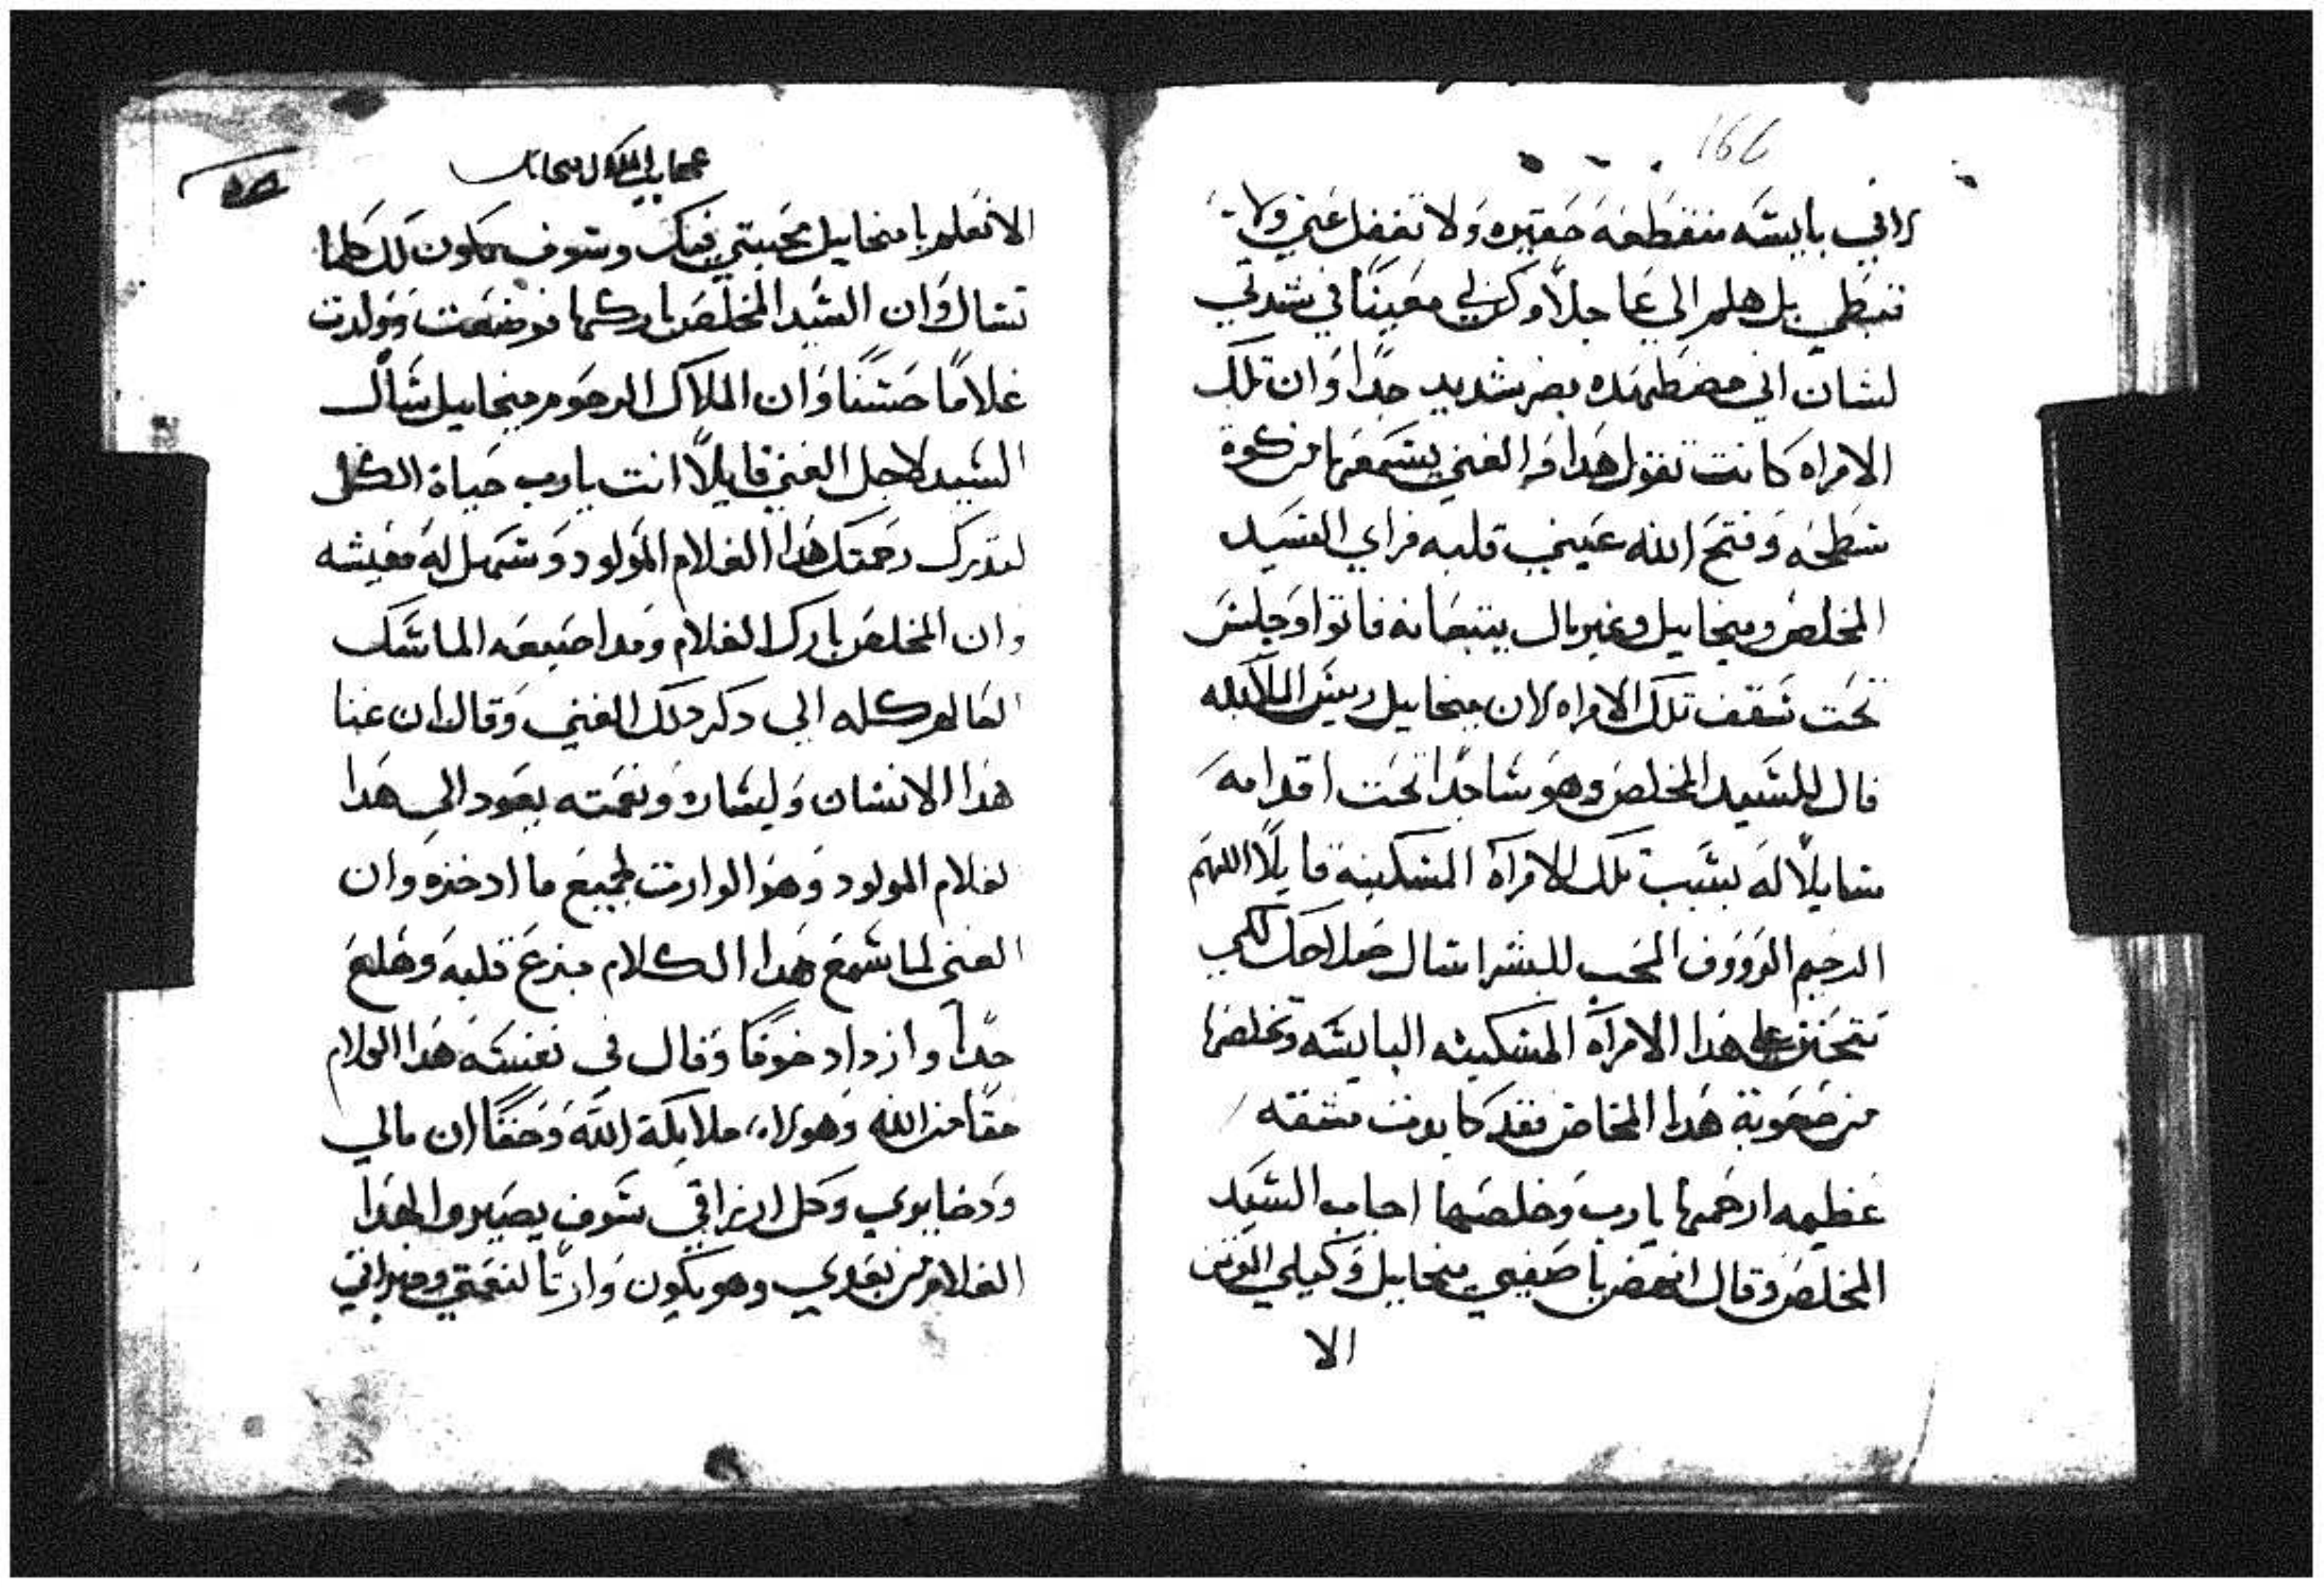 166
راني بايسه منقطعه حقيره ولا تغفل عني ولا
تبطي بل هلم الي عاجلاً وكن لي معيناً في شدتي
لسان اني مضطهده بضر شديد جداً وان تلك
الامراه كانت تقول هدا والغني يسمعها من كوة
سطحه وفتح الله عيني قلبه فراي السيد
المخلص وميخاييل وغبريال يتبعانه فاتوا وجلس
تحت سقف تلك الامراه لان ميخاييل رييس الملايكه
قال للسيد المخلص وهو ساجداً تحت اقدامه
سايلاً له بسبب تلك الامرأة المسكينة قايلاً اللهم
الرحيم الرووف المحب للبشر اسال صلاحك لكي
تتحنن علي هدا الامرأة المسكينه البايسه وتخلصها
من صعوبة هدا المخاض فقد كابدت مشقه
عظيمه ارحمها يارب وخلصها اجاب السيد
المخلص وقال انهض يا صفيي ميخاييل وكيلي
الا
عجايب الملاك ميخاييل
الا تعلم يا ميخاييل محبتي فيك وسوف يكون لك كلما
تسال وان السيد المخلص باركها فوضعت وولدت
غلاماً حسناً وان الملاك الرحوم ميخاييل سأل
السيد لاجل الغني قايلاً انت يارب حياة الكل
لتدرك رحمتك هدا الغلام المولود وسهل له معيشه
وان المخلص بارك الغلام ومدا اصبعه الماسك
العالم كله الي دكر دلك الغني وقال ان غنا
هدا الانسان وليساره ونعمته يعود الي هدا
لغلام المولود وهو الوارت لجميع ما ادخره وان
الغني لما سمع هدا الكلام فزع قلبه وهلع
جداً وازداد خوفاً وقال في نفسه هدا الغلام
حقاً من الله وهولاء ملايكة الله وحقاً ان مالي
ودخايري وكل ارزاقي سوف يصيروا لهدا
الغلام من بعدي وهو يكون وارتاً لنعمتي وميراتي